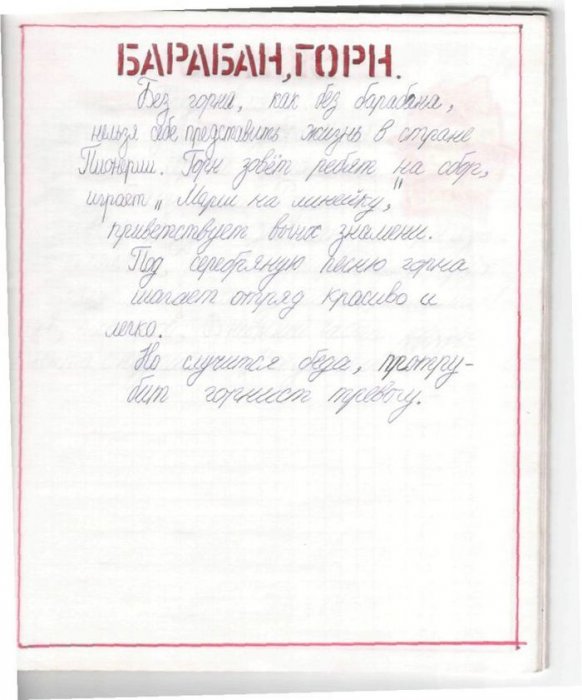 БАРАБАН, ГОРН.
Без горна, как без барабана,
нельзя себе представить жизнь в стране
Пионерии. Горн зовёт ребят на сбор,
играет „Марш на линейку",
приветствует вынх знамени.
Под серебряную песню горна
шагает отряд красиво и
легко.
Но случится беда, протру-
бит горнист тревогу.